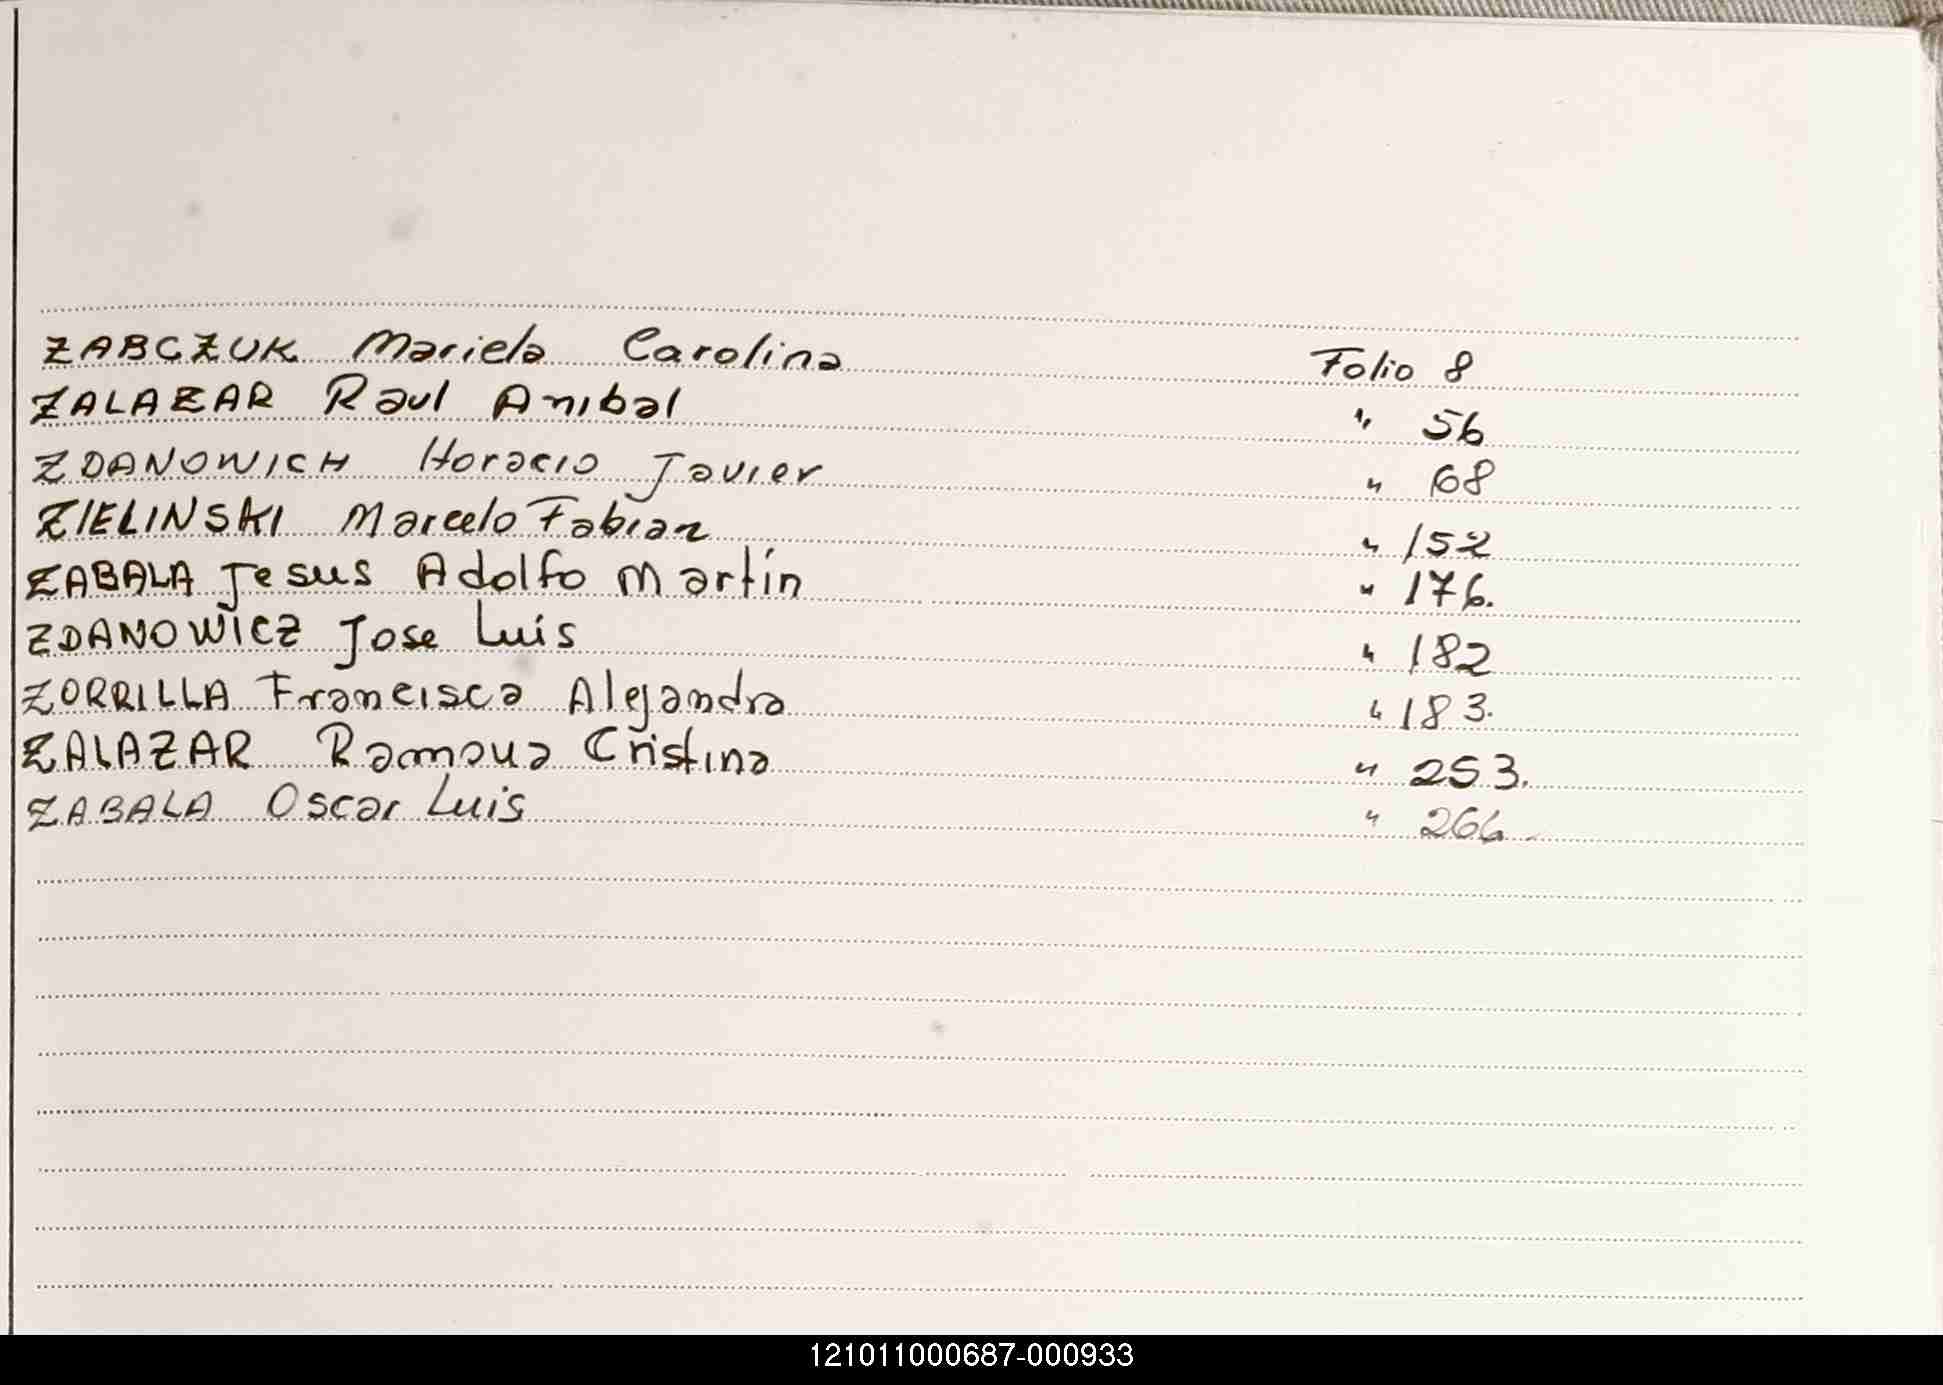 ZABCZUK Mariela Carolina Folio 8
ZALAZAR Raul Anibal " 56
ZDANOWICH Horacio Javier " 68
ZIELINSKI Marcelo Fabian " 152
ZABALA Jesus Adolfo Martín " 176.
ZDANOWICZ Jose Luis " 182
ZORRILLA Francisca Alejandra " 183.
ZALAZAR Ramona Cristina " 253.
ZABALA Oscar Luis " 266
121011000687-000933